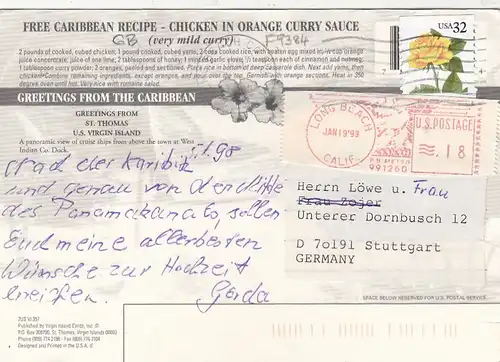 FREE CARIBBEAN RECIPE - CHICKEN IN ORANGE CURRY SAUCE
GB (very mild curry) F9384
2 pounds of cooked, cubed chicken; 1 pound cooked, cubed yams; 2
juice concentrate; juice of one lime; 2 tablespoons of honey; 1 minced garlic clove; ½ teaspoon each of cinnamon and nutmeg;
1 tablespoon curry powder; 2 oranges, peeled and sectioned. Place rice in bottom of deep casserole dish. Next add yams, then
chicken. Combine remaining ingredients, except oranges, and pour over the top. Garnish with orange sections. Heat in 350
degree oven until hot. Very nice with romaine salad.
USA 32
GREETINGS FROM THE CARIBBEAN
GREETINGS FROM
ST. THOMAS
U.S. VIRGIN ISLAND
A panoramic view of cruise ships from above the town at West
Indian Co. Dock.
LONG BEACH
JAN 19'93
CALIF.
U.S. POSTAGE
.18
PB METER
991260
1.98
der Karibik
und genau von der Mitte
des Panamakanals, sollen
Euch meine allerbesten
Wünsche zur Hochzeit
erreichen. Gerda
Herrn Löwe u. Frau
Frau Zojer
Unterer Dornbusch 12
D 70191 Stuttgart
GERMANY
SPACE BELOW RESERVED FOR U.S. POSTAL SERVICE
Published by Virgin Island
St. Thomas, Virgin Islands 00803
Designed and Printed in the U.S.A.